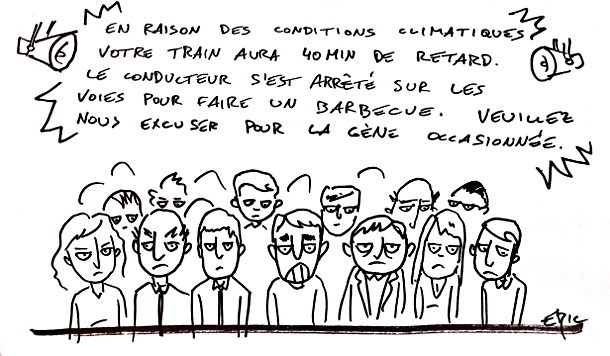 EN RAISON DES CONDITIONS CLIMATIQUES
VOTRE TRAIN AURA 40 MIN DE RETARD.
LE CONDUCTEUR S'EST ARRÊTÉ SUR LES
VOIES POUR FAIRE UN BARBECUE. VEUILLEZ
NOUS EXCUSER POUR LA GÈNE OCCASIONNÉE.
EPIC